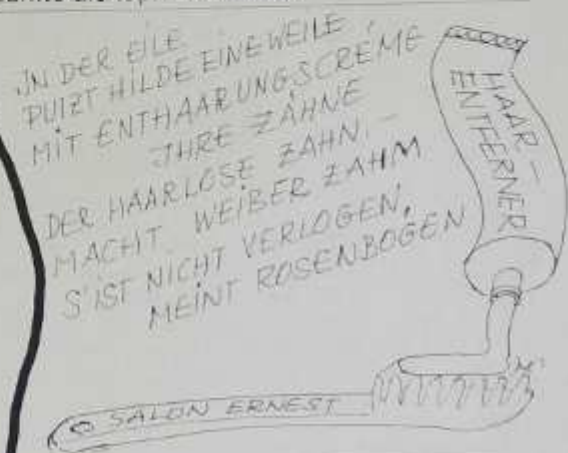 IN DER EILE
PUTZT HILDE EINE WEILE
MIT ENTHAARUNGSCREME
IHRE ZÄHNE
DER HAARLOSE ZAHN. –
MACHT WEIBER ZAHM
S'IST NICHT VERLOGEN,
MEINT ROSENBOGEN
HAAR-
ENTFERNER
SALON ERNEST